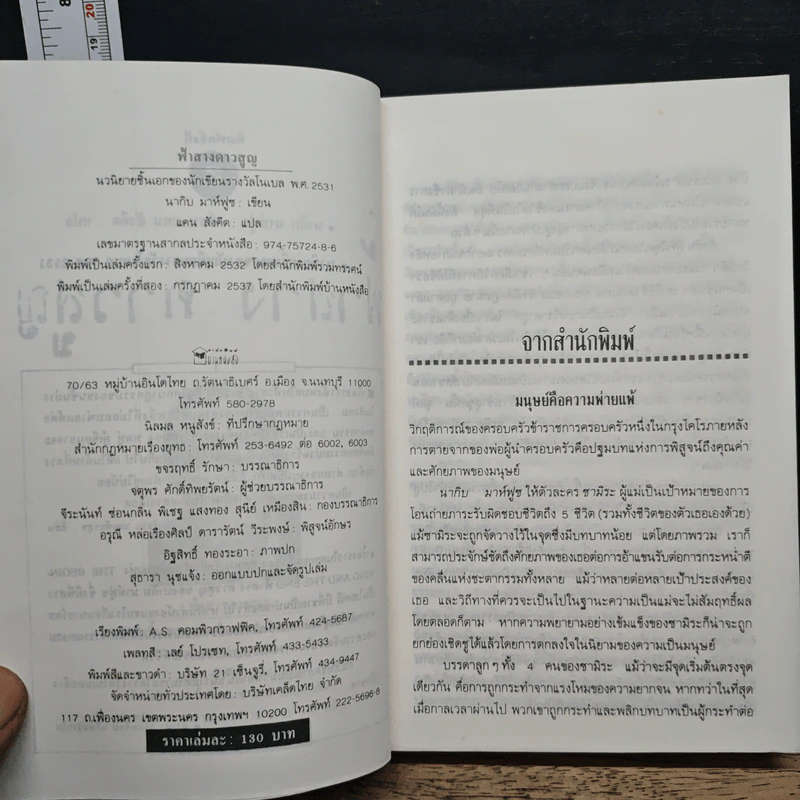 ฟ้าสางดาวสูญ
นวนิยายชิ้นเอกของนักเขียนรางวัลโนเบล พ.ศ. 2531
นากิบ มาห์ฟูซ : เขียน
แคน สังคีต : แปล
เลขมาตรฐานสากลประจำหนังสือ : 974-75724-8-6
พิมพ์เป็นเล่มครั้งแรก : สิงหาคม 2532 โดยสำนักพิมพ์รวมทรรศน์
พิมพ์เป็นเล่มครั้งที่สอง : กรกฎาคม 2537 โดยสำนักพิมพ์บ้านหนังสือ
70/63 หมู่บ้านอินโดไทย ถ.รัตนาธิเบศร์ อ.เมือง จ.นนทบุรี 11000
โทรศัพท์ 580-2978
นิลมล หนูสังข์ : ที่ปรึกษากฎหมาย
สำนักกฎหมายเรืองยุทธ : โทรศัพท์ 253-6492 ต่อ 6002, 6003
ขจรฤทธิ์ รักษา : บรรณาธิการ
จตุพร ศักดิ์ทิพยรัตน์ : ผู้ช่วยบรรณาธิการ
จีระนันท์ ซ่อนกลิ่น พิเชฐ แสงทอง สุนีย์ เหมืองสิน : กองบรรณาธิการ
อรุณี หล่อเรืองศิลป์ ดารารัตน์ วีระพงษ์ : พิสูจน์อักษร
อิฐสิทธิ์ ทองระอา : ภาพปก
สุธารา นุชแจ้ง : ออกแบบปกและจัดรูปเล่ม
เรียงพิมพ์ : A.S. คอมพิวกราฟฟิค, โทรศัพท์ 424-5687
เพลทสี : เลย์ โปรเซท, โทรศัพท์ 433-5433
พิมพ์สีและขาวดำ : บริษัท 21 เซ็นจูรี่, โทรศัพท์ 434-9447
จัดจำหน่ายทั่วประเทศโดย : บริษัทเคล็ดไทย จำกัด
117 ถ.เฟื่องนคร เขตพระนคร กรุงเทพฯ 10200 โทรศัพท์ 222-5696-8
ราคาเล่มละ : 130 บาท
จากสำนักพิมพ์
มนุษย์คือความพ่ายแพ้
วิกฤติการณ์ของครอบครัวข้าราชการครอบครัวหนึ่งในกรุงไคโรภายหลัง
การตายจากของพ่อผู้นำครอบครัวคือปฐมบทแห่งการพิสูจน์ถึงคุณค่า
และศักยภาพของมนุษย์
นากิบ มาห์ฟูซ ให้ตัวละคร ซามิระ ผู้แม่เป็นเป้าหมายของการ
โอนถ่ายภาระรับผิดชอบชีวิตถึง 5 ชีวิต (รวมทั้งชีวิตของตัวเธอเองด้วย)
แม้ซามิระจะถูกจัดวางไว้ในจุดซึ่งมีบทบาทน้อย แต่โดยภาพรวม เราก็
สามารถประจักษ์ชัดถึงศักยภาพของเธอต่อการอ้าแขนรับต่อการกระหน่ำตี
ของคลื่นแห่งชะตากรรมทั้งหลาย แม้ว่าหลายต่อหลายเป้าประสงค์ของ
เธอ และวิถีทางที่ควรจะเป็นไปในฐานะความเป็นแม่จะไม่สัมฤทธิ์ผล
โดยตลอดก็ตาม หากความพยายามอย่างเข้มแข็งของซามิระก็น่าจะถูก
ยกย่องเชิดชูได้แล้วโดยการตกลงใจในนิยามของความเป็นมนุษย์
บรรดาลูก ๆ ทั้ง 4 คนของซามิระ แม้ว่าจะมีจุดเริ่มต้นตรงจุด
เดียวกัน คือการถูกกระทำจากแรงโหมของความยากจน หากทว่าในที่สุด
เมื่อกาลเวลาผ่านไป พวกเขาถูกกระทำและพลิกบทบาทเป็นผู้กระทำต่อ